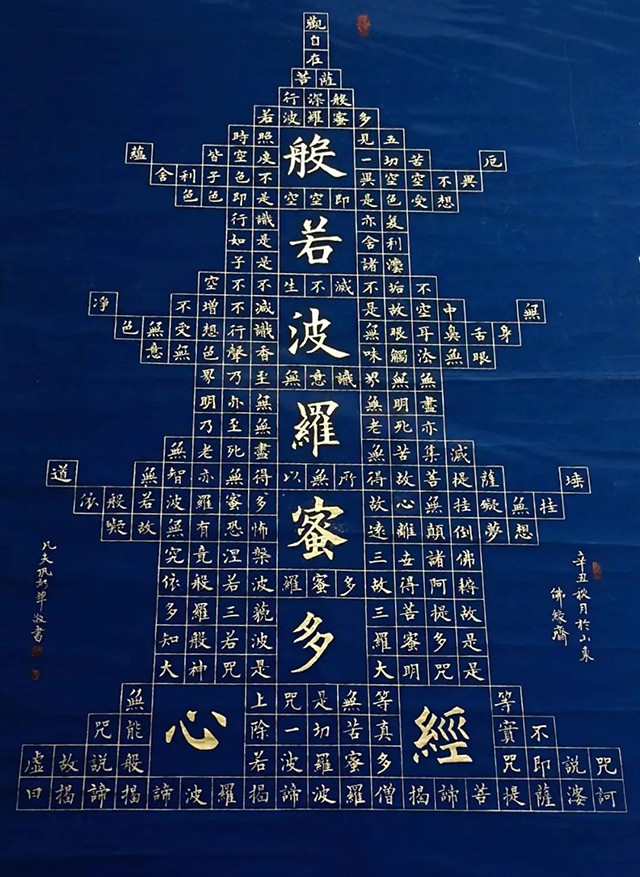 觀
自
在
菩薩
行深般
若波羅蜜多
時照見五
蘊皆空度一切苦厄
舍利子色不異空空不異
色色即是空空即是色受想
行識亦复
如是舍利
子是諸灋
空不生不滅不垢不
凈不增不減是故空中無
色無受想行識無眼耳鼻舌身
意無色聲香味觸法無眼
界乃至無意識界無無
明亦無無明盡
乃至無老死亦
無老死盡無苦集滅
道無智亦無得以無所得故菩提薩埵
依般若波羅蜜多故心無挂礙無挂
礙故無有恐怖遠離顛倒夢想
究竟涅槃三世諸佛
依般若波羅蜜多故得阿耨
多羅三藐三菩提故
知般若波羅蜜多是
大神咒是大明咒是
無上咒是無等等
咒能除一切苦真實不
虛故說般若波羅蜜多咒即說咒
曰揭諦揭諦波羅揭諦波羅僧揭諦菩提薩婆訶
般若波羅蜜多心經
辛丑秋月於山東
佛緣齋
凡夫敬書